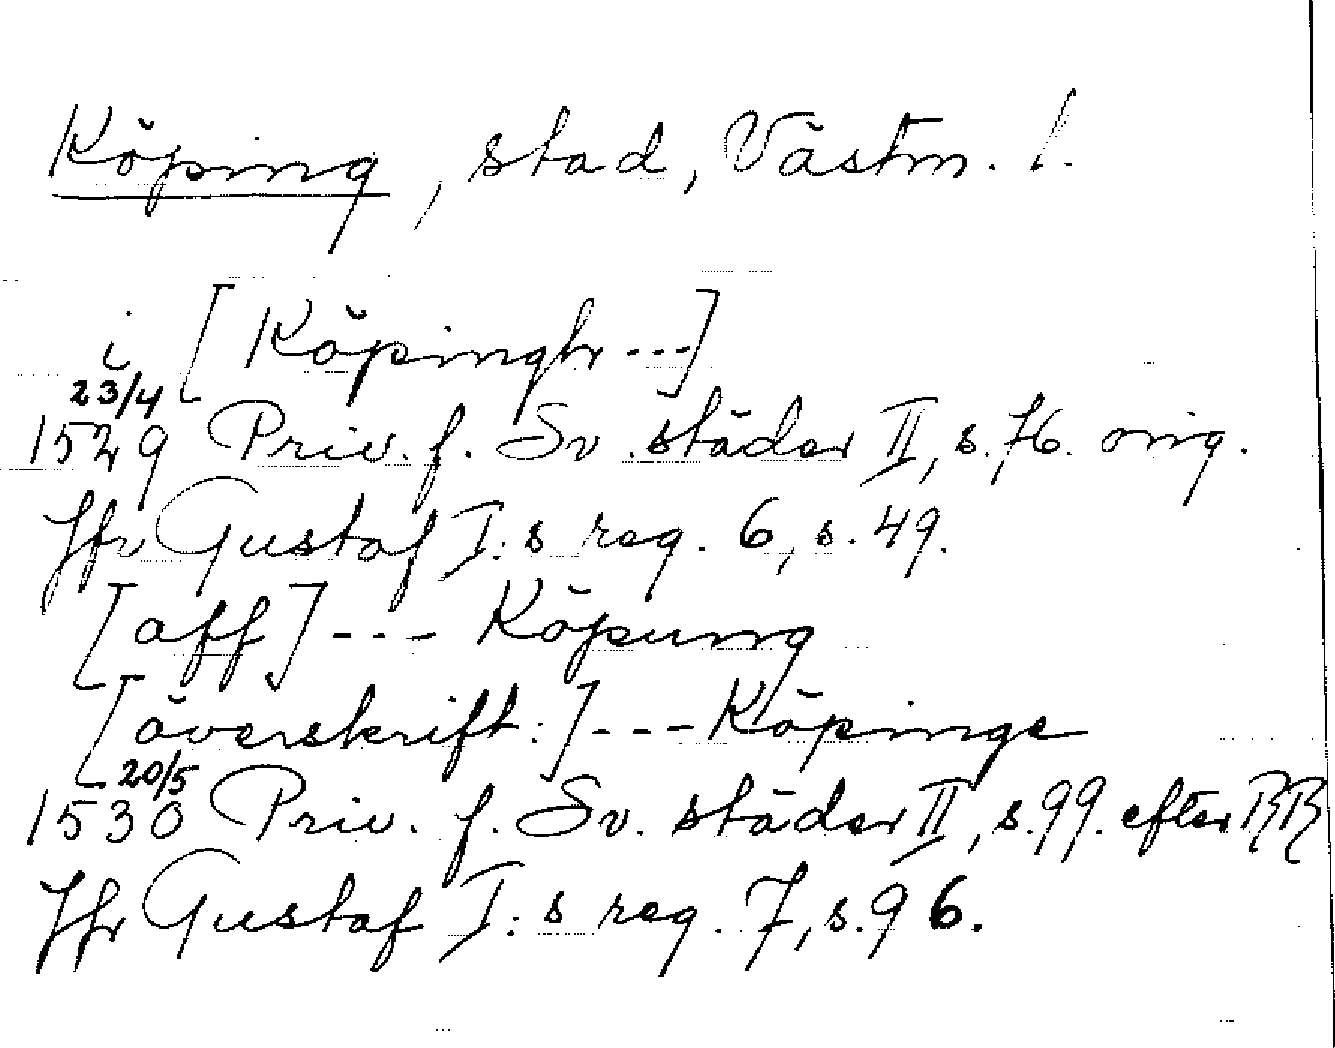 Köping, stad, Västm. l.
i [Köpingh ---]
23/4
1529 Priv. f. Sv. städer II, s. 76. orig.
Jfr Gustaf I:s reg. 6, s. 49.
[aff] --- Köpung
[överskrift:] --- Köpinge
20/5
1530 Priv. f. Sv. städer II, s. 99. efter RR
Jfr Gustaf I:s reg. 7, s. 96.